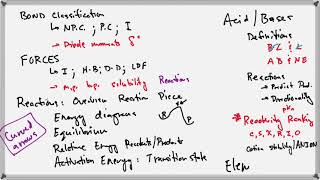 BOND Classification
↳ N.P.C. ; P.C ; I
↳ Dipole moments δ
FORCES
↳ I ; H-B; D-D; LDF
↳ m.p. b.p. solubility
Reactions
Reactions: Overview Reaction
Energy diagrams
Equilibrium
Relative Energy Reactants/Products
Activation Energy: Transition state
Curved
arrows
Acid/Bases
Definitions
B L & L
A B & N E
Reactions
→ Predict Prod.
→ Directionality
pKa
* Reactivity Ranking
C, S, X, R, I, O
Cation stability/ANION
Elem